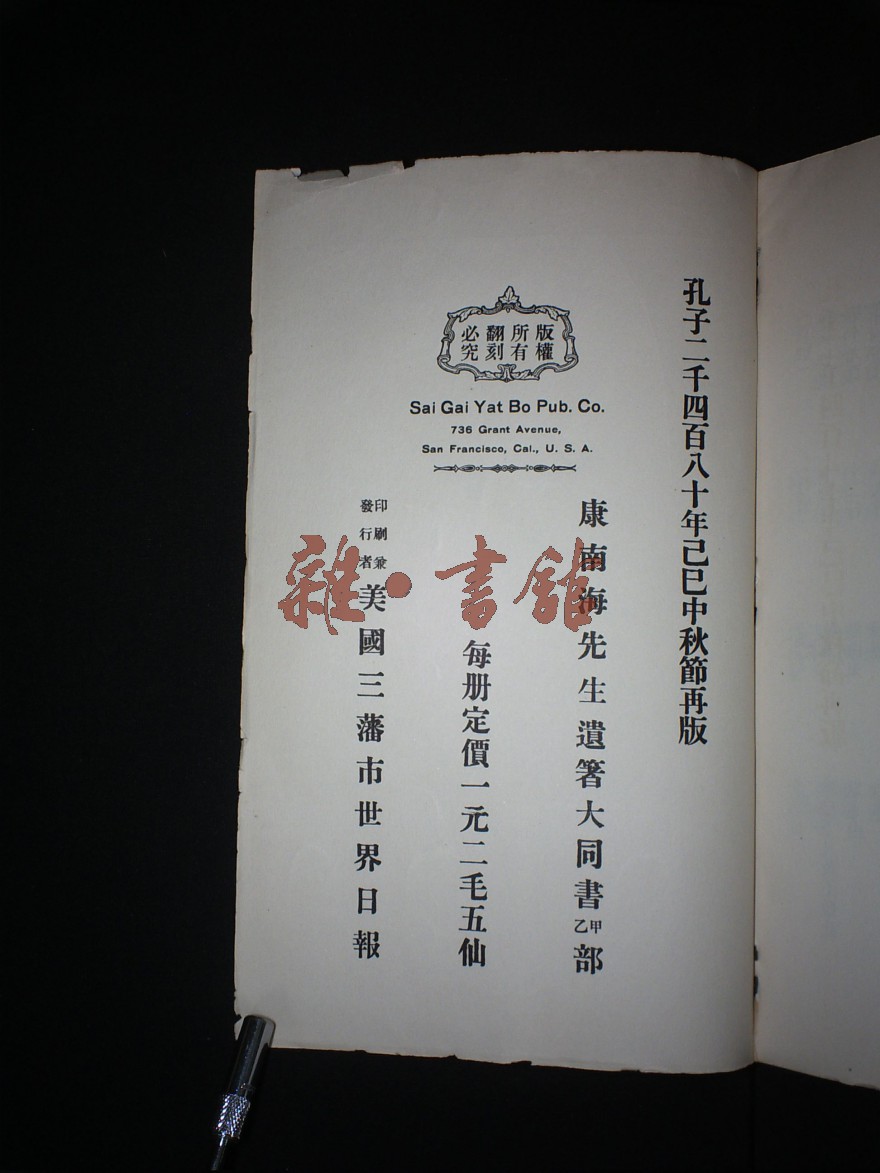 孔子二千四百八十年己巳中秋節再版
版權
所有
翻刻
必究
Sai Gai Yat Bo Pub. Co.
736 Grant Avenue,
San Francisco, Cal., U. S. A.
康南海先生遺箸大同書甲乙部
每册定價一元二毛五仙
印刷兼發行者美國三藩市世界日報
雜·書館